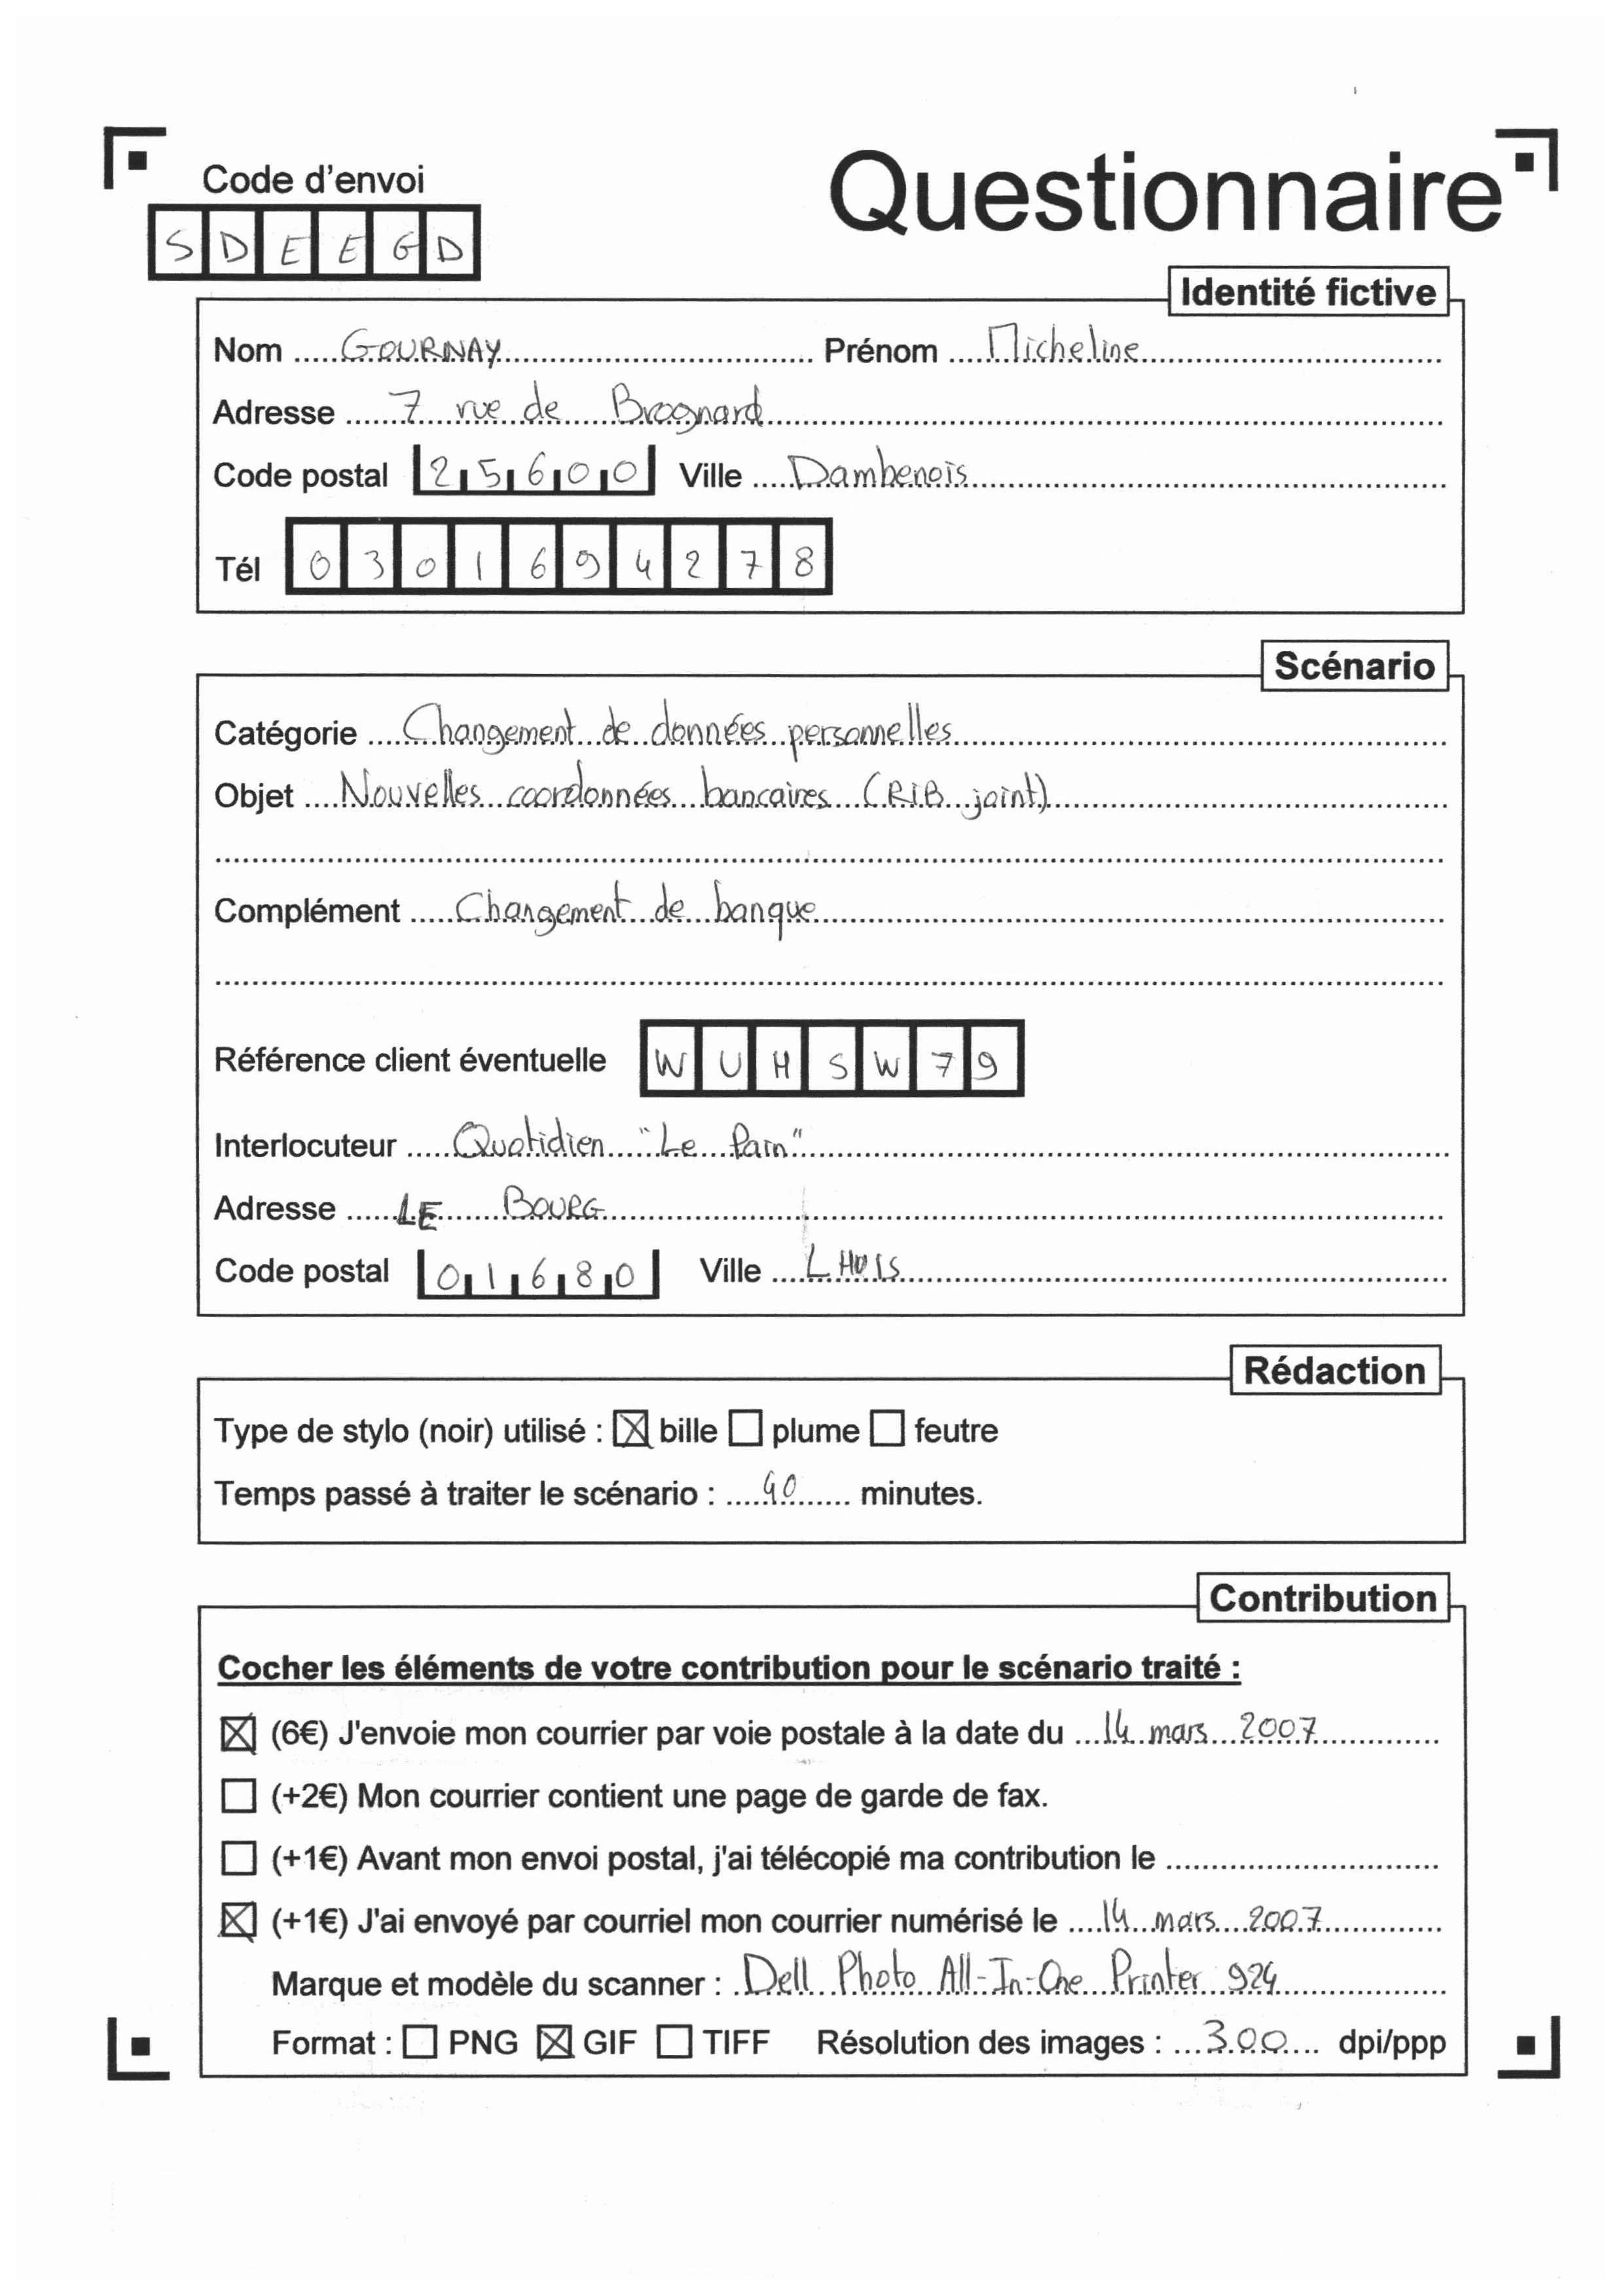 Code d'envoi
Questionnaire
S D E E G D
Identité fictive
Nom GOURNAY Prénom Micheline
Adresse 7 rue de Brognard
Code postal 25600 Ville Dambenois
Tél 0301694278
Scénario
Catégorie Changement de données personnelles
Objet Nouvelles coordonnées bancaires (RIB joint)
Complément Changement de banque
Référence client éventuelle WUHSW79
Interlocuteur Quotidien "Le Pain"
Adresse LE BOURG
Code postal 01680 Ville LHUIS
Rédaction
Type de stylo (noir) utilisé : ☒ bille ☐ plume ☐ feutre
Temps passé à traiter le scénario : 40 minutes.
Contribution
Cocher les éléments de votre contribution pour le scénario traité :
☒ (6€) J'envoie mon courrier par voie postale à la date du 14 mars 2007
☐ (+2€) Mon courrier contient une page de garde de fax.
☐ (+1€) Avant mon envoi postal, j'ai télécopié ma contribution le
☒ (+1€) J'ai envoyé par courriel mon courrier numérisé le 14 mars 2007
Marque et modèle du scanner : Dell Photo All-In-One Printer 924
Format : ☐ PNG ☒ GIF ☐ TIFF Résolution des images : 300 dpi/ppp